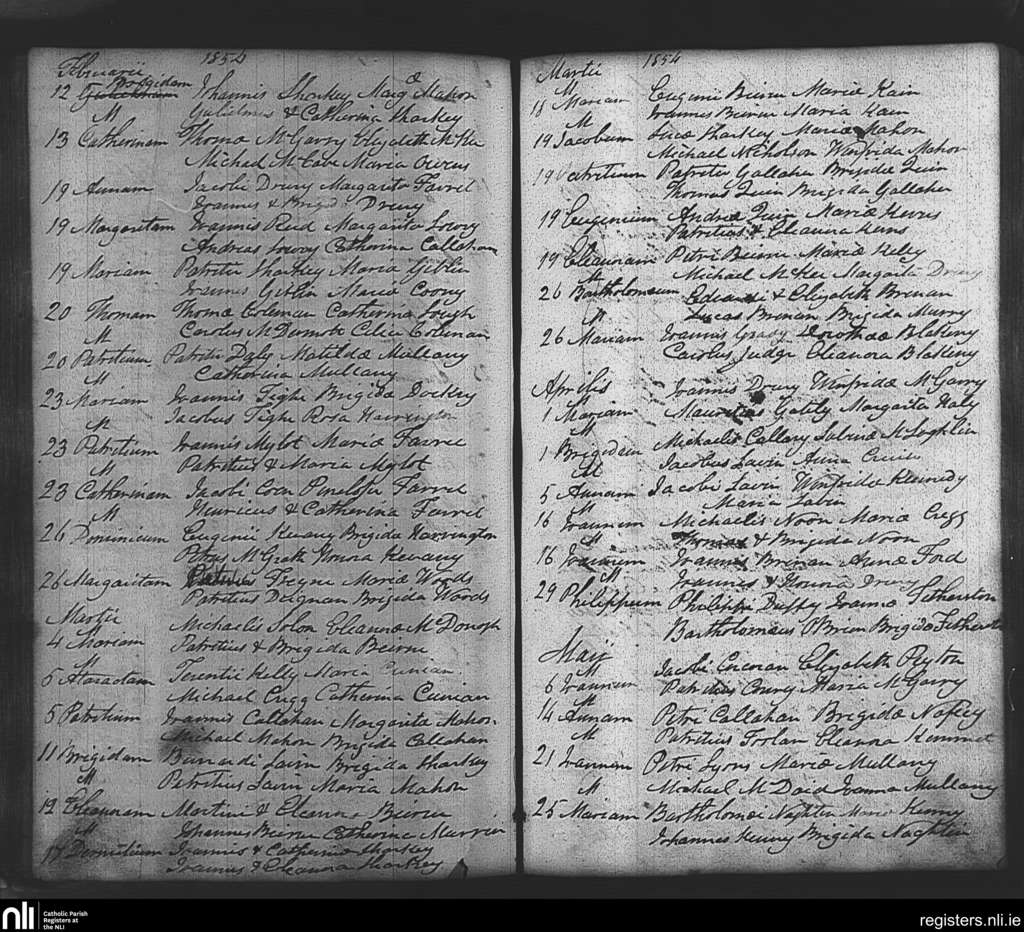 Februarii 1854
Bridgidam
12 Johannis Sharkey Marg Mahon
M Gulielmus & Catherina Sharkey
13 Catherinam Thoma McGarry Elizabeth McKee
Michael McCabe Maria Owens
19 Annam Jacobi Drury Margarita Farrel
Joannis & Brigid Drury
19 Margaretam Joannis Reid Margarita Lowry
Andreas Lowry Catherina Callaham
19 Mariam Patritii Sharkey Maria Giblin
Joannes Giblin Maria
20 Thomam Thoma Coleman Catherina
M Carolus McDermott Celia Coleman
20 Patritium Patritii Daly Matilda Mullany
M Catherina Mullany
23 Mariam Joannis Tighe Brigida Dockry
M Jacobus Tighe Rosa Harrington
23 Patritium Joannis Mylot Maria Farrel
M Patritius & Maria Mylot
23 Catherinam Jacobi Penelope Farrel
M Henricus & Catherina Farrel
26 Dominicum Eugenii Brigida Harrington
McGrath Honora
26 Margaritam Freyne Maria Woods
Patritius Deignan Brigida Woods
Martii Michaelis Eleanna McDonogh
4 Mariam Patritius & Brigida Beirn
5 Terentii Kelly Maria
Michael Cregg Catherina
5 Patritium Joannis Callahan Margarita Mahon
Michael Mahon Brigida Callahan
11 Brigidam Bernardi Lavin Brigida Sharkey
M Patritius Lavin Maria Mahon
12 Eleannam Martini & Eleanna Beirn
M Johannes Beirn Catherina
17 Joannis & Catherina Sharkey
Joannes & Eleanora Sharkey
Martii 1854
M Eugenii Beirn Maria Kain
18 Mariam Joannes Beirn Maria Kain
M
19 Jacobum Luca Sharkey Maria Mahon
Michael Nicholson Winifrida Mahon
19 Patritium Patritii Gallaher Brigida Quin
Thomas Quin Brigida Gallaher
19 Eugenium Andrea Quin Maria
Patritius & Eleanora
19 Eleanoram Petri Beirn Maria Hely
Michael McKee Margarita Drury
26 Bartholomeum Edwardi & Elizabeth Brenan
M Lucas Brenan Brigida Murry
26 Mariam Joannis Grady Dorothea Blakeny
Carolus Judge Eleanora Blakeny
Aprilis Joannis Drury Winifrida McGarry
1 Mariam Mauritius Margarita Haly
M Michaelis Callery Sabina McLoghlin
1 Brigidam Jacobus Lavin Anna
M
5 Annam Jacobi Lavin Winifrida Kennedy
M Maria
16 Joannem Michaelis Noon Maria Cregg
M Thomas & Brigida Noon
16 Joannem Joannis Brenan Anna Ford
M Joannes & Honora Drury
29 Philippum Philippi Duffy Joanna Fetherston
Bartholomaeus O'Brien Brigida
Maij Jacobi Corcoran Elizabeth Peyton
6 Joannem Patritius Maria McGarry
M
14 Annam Petri Callahan Brigida
M Patritius Eleanna
21 Joannem Petri Lyons Maria Mullany
M Michael McDaid Joanna Mullany
25 Mariam Bartholomei Naghten Maria Kenny
Johannes Kenny Brigida Naghten
nli Catholic Parish
Registers at
the NLI
registers.nli.ie